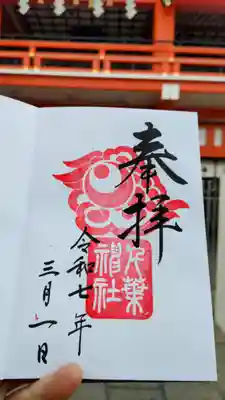 奉拝
千葉
神社
令和七年
三月一日